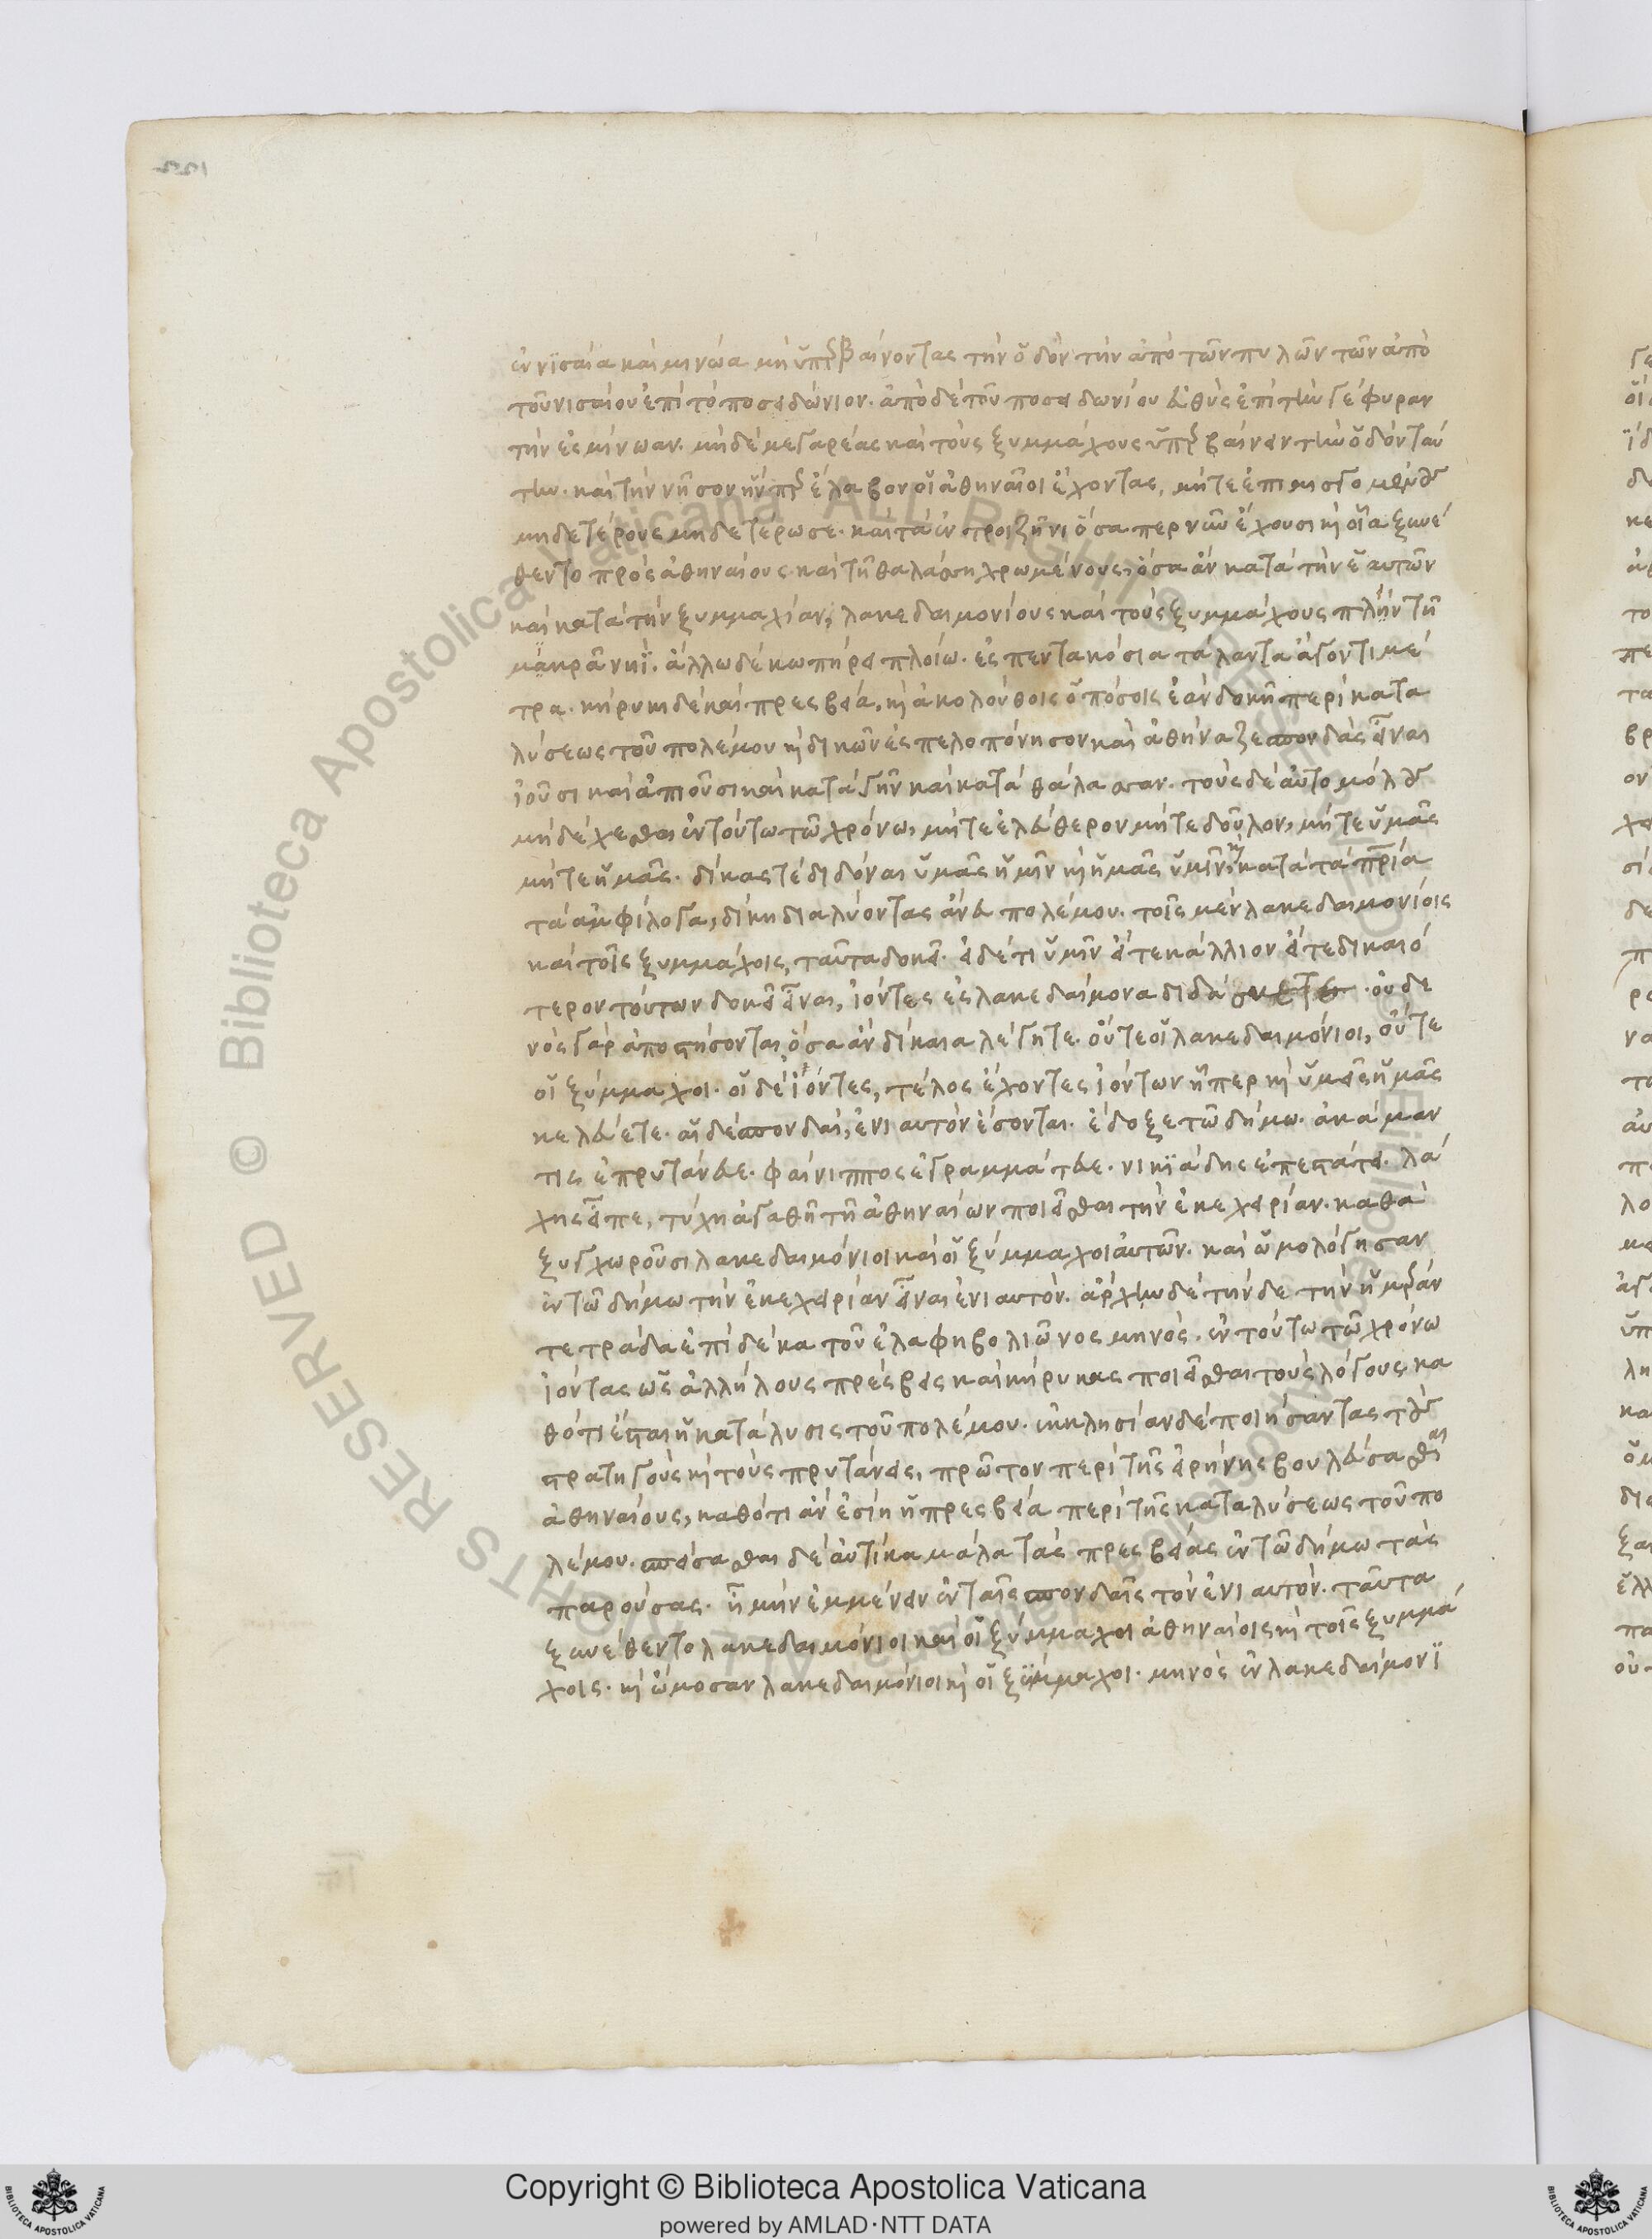 ἐν νισαία καὶ μινώα μὴ ὑπερβαίνοντας τὴν ὁδὸν τὴν ἀπὸ τῶν πυλῶν τῶν ἀπὸ
τοῦ νισαίου ἐπὶ τὸ ποσειδώνιον. ἀπὸ δὲ τοῦ ποσειδωνίου εὐθὺς ἐπὶ τὴν γέφυραν
τὴν ἐς μίνωαν. μηδὲ μεγαρέας καὶ τοὺς ξυμμάχους ὑπερβαίνειν τὴν ὁδὸν ταύ
την. καὶ τὴν νῆσον ἥνπερ ἔλαβον οἱ ἀθηναῖοι ἔχοντας, μήτε ἐπιμισγομένους
μηδετέρους μηδετέρωσε. καὶ τὰ ἐν τροιζῆνι ὅσα περ νῦν ἔχουσι καὶ οἷα ξυνέ
θεντο πρὸς ἀθηναίους. καὶ τῆ θαλάσση χρωμένους, ὅσα ἂν κατὰ τὴν ἑαυτῶν
καὶ κατὰ τὴν ξυμμαχίαν, λακεδαιμονίους καὶ τοὺς ξυμμάχους πλὴν τῆ
μακρᾶ νηῒ. ἄλλω δὲ κωπήρει πλοίω. ἐς πεντακόσια τάλαντα ἄγοντι μέ
τρα. κήρυκι δὲ καὶ πρεσβεία, καὶ ἀκολούθοις ὁπόσοις ἐὰν δοκῆ περὶ κατα
λύσεως τοῦ πολέμου καὶ δικῶν ἐς πελοπόνησον καὶ ἀθήναζε σπονδὰς εἶναι
ἰοῦσι καὶ ἀπιοῦσι καὶ κατὰ γῆν καὶ κατὰ θάλασσαν. τοὺς δὲ αὐτομόλους
μὴ δέχεσθαι ἐν τούτω τῶ χρόνω, μήτε ἐλεύθερον μήτε δοῦλον, μήτε ὑμᾶς
μήτε ἡμᾶς. δίκας τὲ διδόναι ὑμᾶς ἡμῖν καὶ ἡμᾶς ὑμῖν κατὰ τὰ πάτρια
τὰ ἀμφίλογα, δίκη διαλύοντας ἄνευ πολέμου. τοῖς μὲν λακεδαιμονίοις
καὶ τοῖς ξυμμάχοις, ταῦτα δοκεῖ. εἰ δέ τι ὑμῖν εἴτε κάλλιον εἴτε δικαιό
τερον τούτων δοκεῖ εἶναι, ἰόντες ἐς λακεδαίμονα διδάσκετε. οὐδε
νὸς γὰρ ἀποστήσονται ὅσα ἂν δίκαια λέγητε. οὔτε οἱ λακεδαιμόνιοι, οὔτε
οἱ ξύμμαχοι. οἱ δὲ ἰόντες, τέλος ἔχοντες ἰόντων ἧπερ καὶ ὑμεῖς ἡμᾶς
κελεύετε. αἱ δὲ σπονδαὶ, ἐνιαυτὸν ἔσονται. ἔδοξε τῶ δήμω. ἀκάμαν
τις ἐπρυτάνευε. φαίνιππος ἐγραμμάτευε. νικϊάδης ἐπεστάτει. λά
χης εἶπε, τύχη ἀγαθῆ τῆ ἀθηναίων ποιεῖσθαι τὴν ἐκεχειρίαν. καθὰ
ξυγχωροῦσι λακεδαιμόνιοι καὶ οἱ ξύμμαχοι αὐτῶν. καὶ ὡμολόγησαν
ἐν τῶ δήμω τὴν ἐκεχειρίαν εἶναι ἐνιαυτόν. ἄρχειν δὲ τήνδε τὴν ἡμέραν
τετράδα ἐπὶ δέκα τοῦ ἐλαφηβολιῶνος μηνός. ἐν τούτω τῶ χρόνω
ἰόντας ὡς ἀλλήλους πρέσβεις καὶ κήρυκας ποιεῖσθαι τοὺς λόγους, κα
θότι ἔσται ἡ κατάλυσις τοῦ πολέμου. ἐκκλησίαν δὲ ποιήσαντας τοὺς
στρατηγοὺς καὶ τοὺς πρυτάνεις, πρῶτον περὶ τῆς εἰρήνης βουλεύσασθαι
ἀθηναίους, καθότι ἂν ἐσίη ἡ πρεσβεία περὶ τῆς καταλύσεως τοῦ πο
λέμου. σπείσασθαι δὲ αὐτίκα μάλα τὰς πρεσβείας ἐν τῶ δήμω τὰς
παρούσας. ἦ μὴν ἐμμένειν ἐν ταῖς σπονδαῖς τὸν ἐνιαυτόν. ταῦτα
ξυνέθεντο λακεδαιμόνιοι καὶ οἱ ξύμμαχοι ἀθηναίοις καὶ τοῖς ξυμμά
χοις. καὶ ὤμοσαν λακεδαιμόνιοι καὶ οἱ ξύμμαχοι. μηνὸς ἐν λακεδαίμονϊ
Copyright © Biblioteca Apostolica Vaticana
powered by AMLAD·NTT DATA